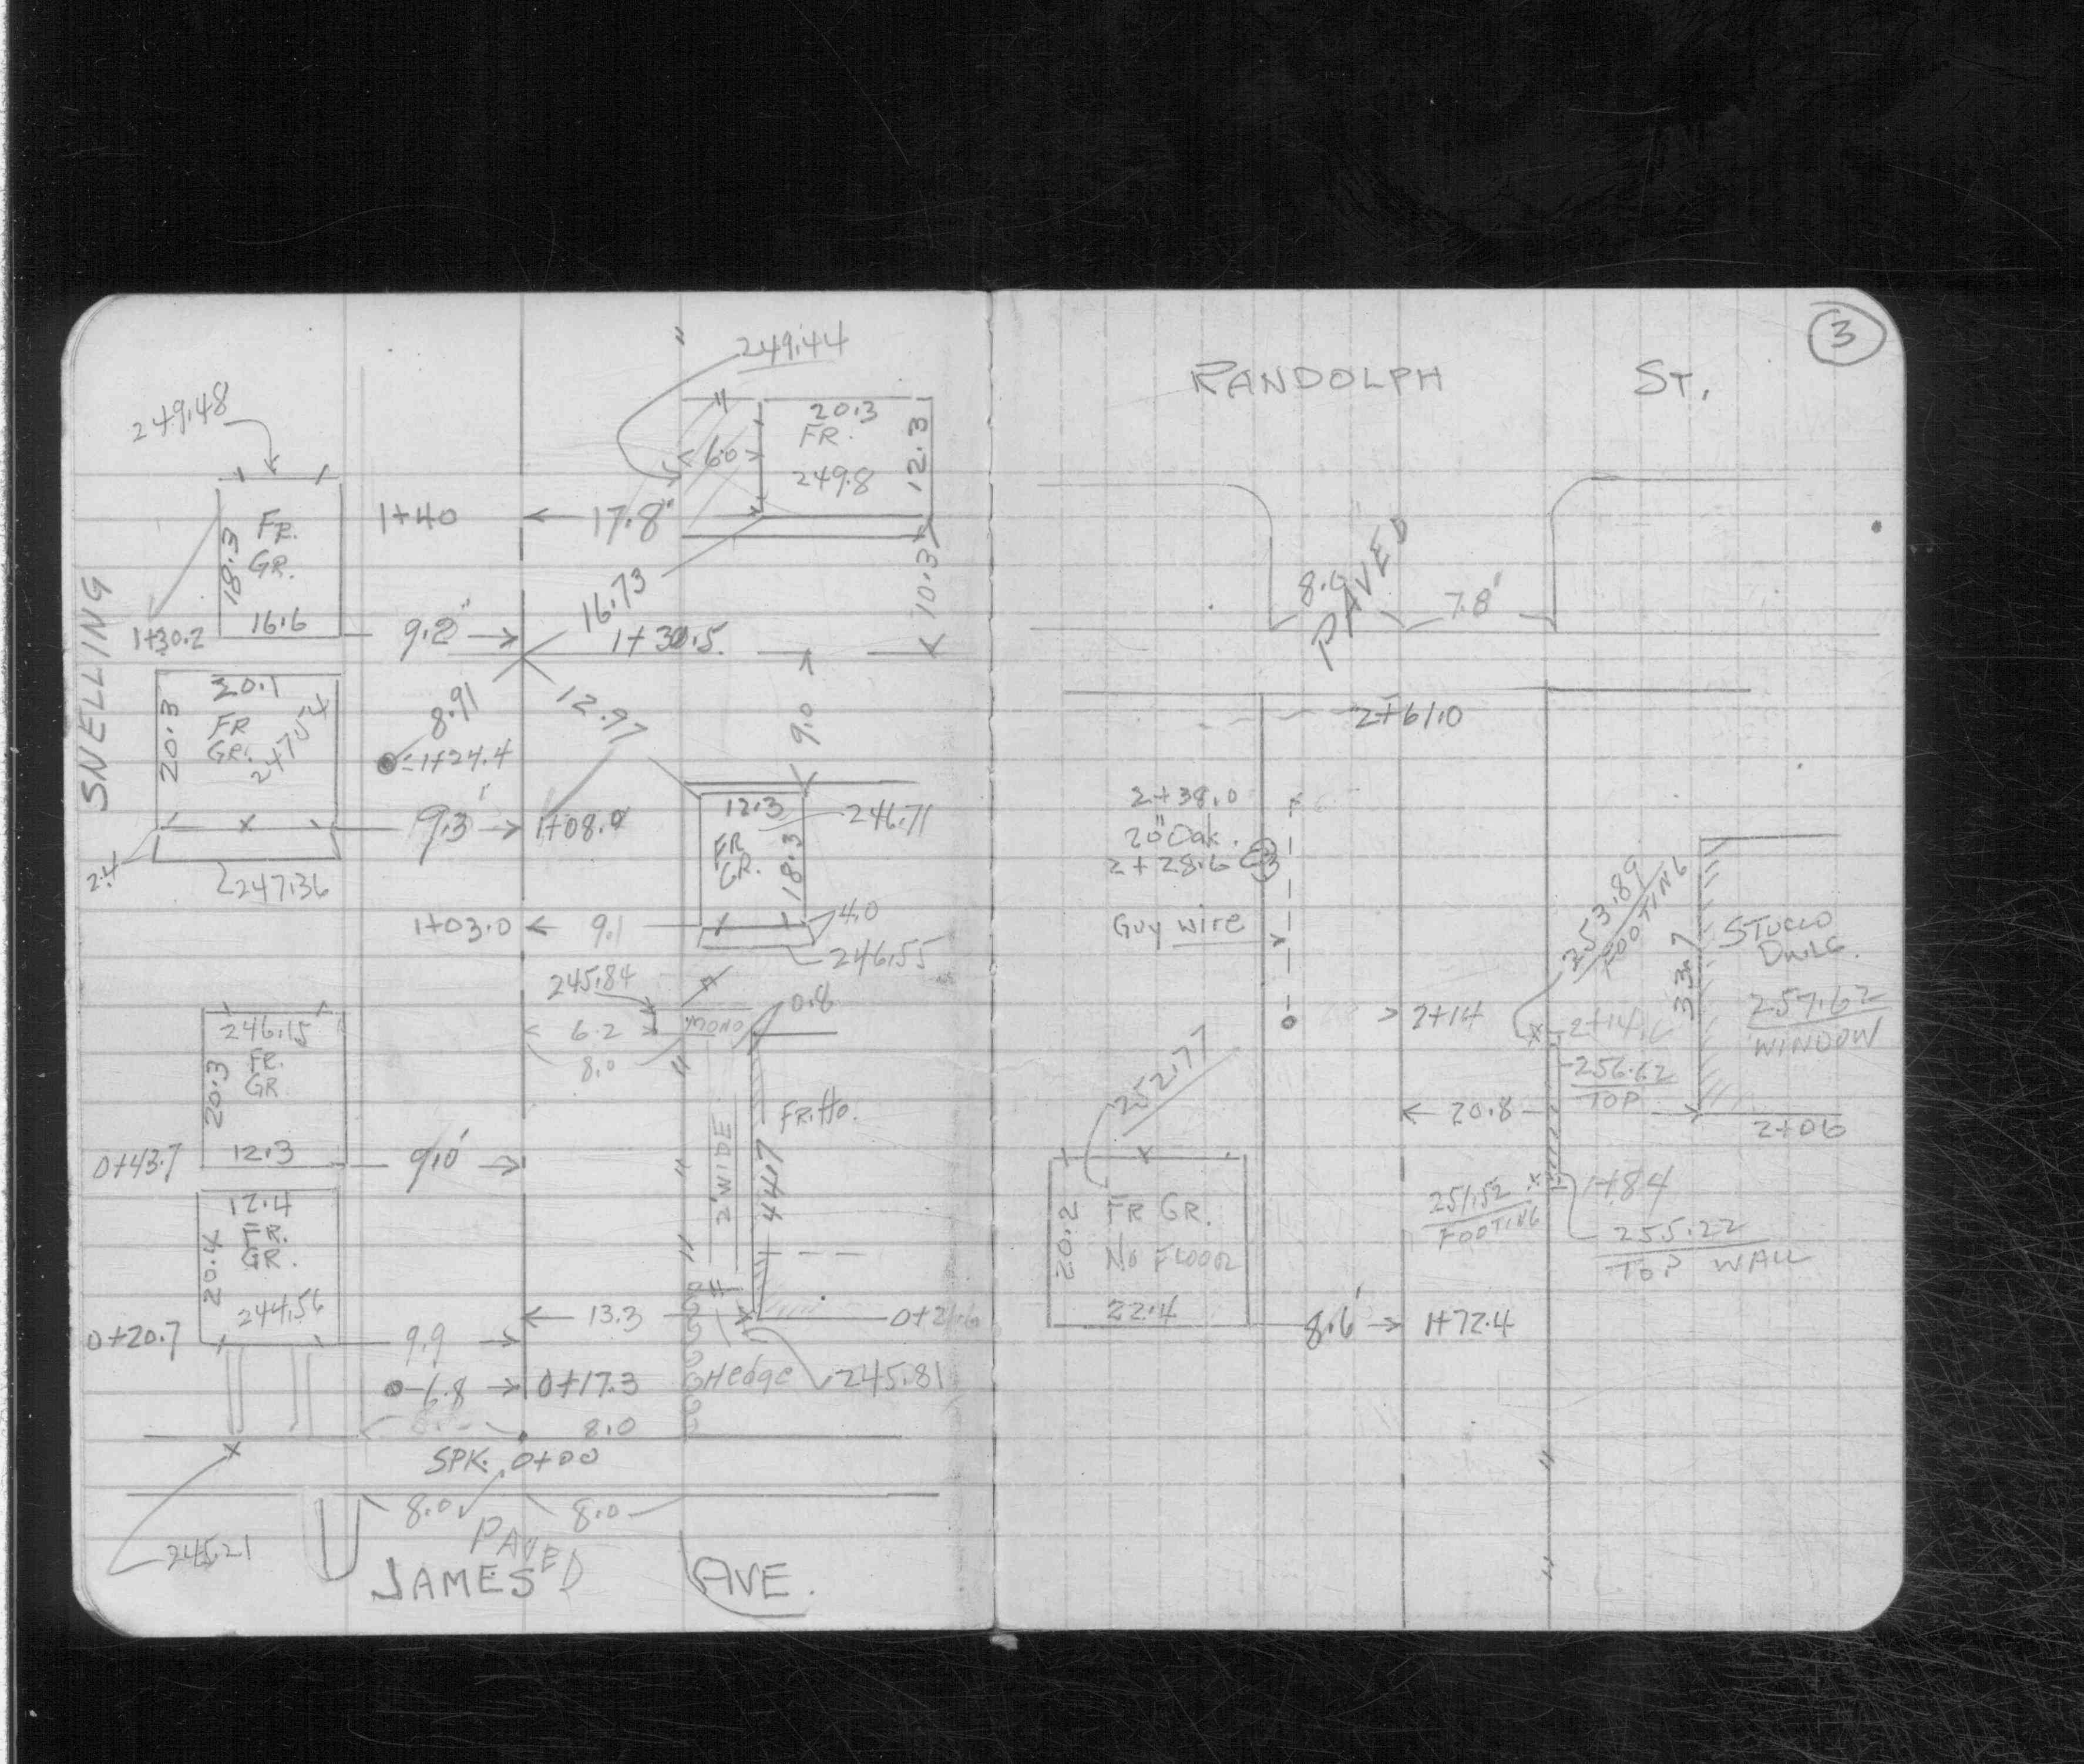 249.44
249.48
20.3
FR.
249.8
12.3
6.0
FR.
GR.
18.3
16.6
1+40
17.8'
10.3
16.73
1+30.2
9.2'
1+30.5
SNELLING
20.1
20.3
FR
GR.
247.54
8.91
12.97
9.0
=1+24.4
9.3'
1+08.9
2.4
247.36
12.3
FR
GR.
18.3
246.71
1+03.0
9.1
4.0
246.55
245.84
6.2
MONO
0.8
8.0
246.15
FR.
GR
20.3
12.3
0+43.7
9.0'
2' WIDE
44.7
FR. Ho.
12.4
FR.
GR.
20.4
244.56
0+20.7
9.9
13.3
6.8
0+17.3
Hedge
245.81
8.0
SPK. 0+00
8.0
8.0
PAVED
245.21
JAMES AVE.
3
RANDOLPH ST.
8.0
PAVED
7.8'
2+61.0
2+38.0
20" Oak.
2+28.6
Guy wire
253.89
FOOTING
33.7
STUCCO
DWLG.
257.62
WINDOW
2+14
256.62
TOP
20.8
2+06
252.77
20.2
FR GR.
No FLOOR
22.4
251.52
FOOTING
1+84
255.22
TOP WALL
8.6'
1+72.4